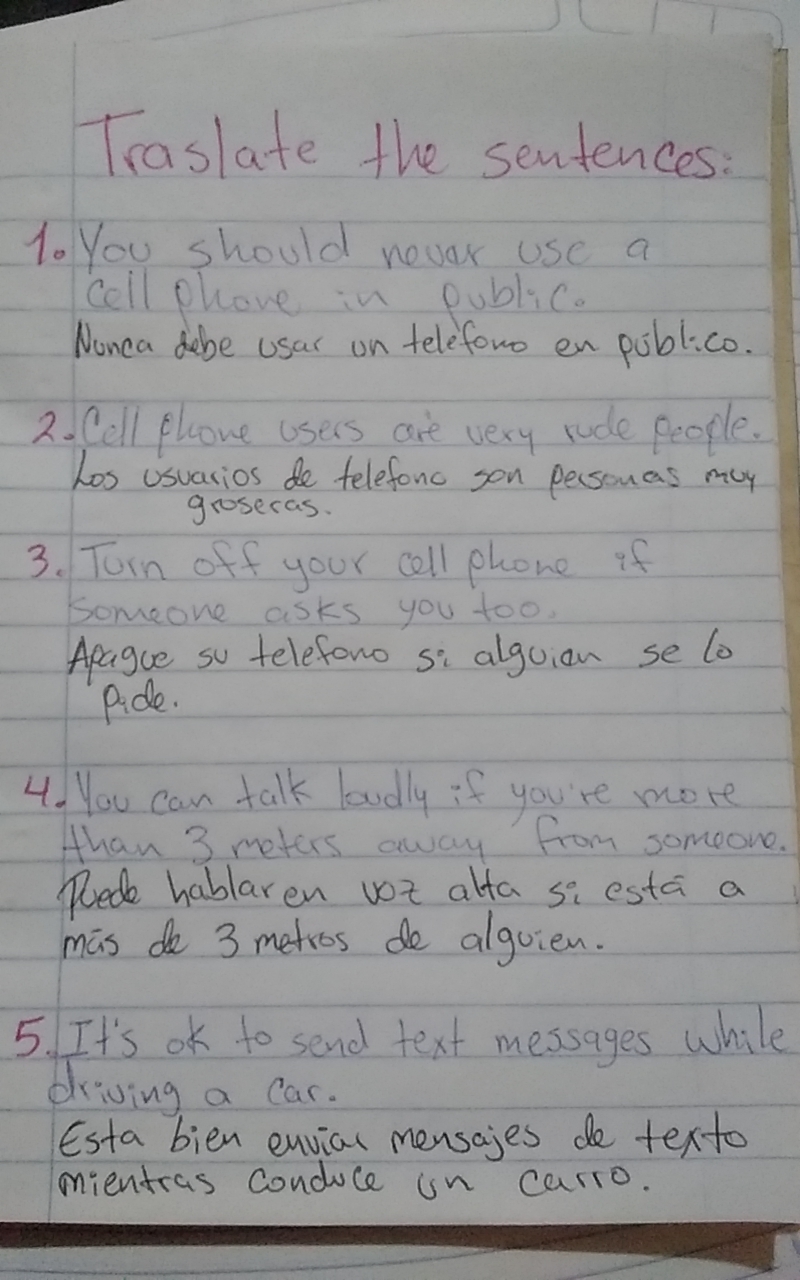 Traslate the sentences:
1. You should never use a
cell phone in public.
Nunca debe usar un teléfono en público.
2. Cell phone users are very rude people.
Los usuarios de telefono son personas muy
groseras.
3. Turn off your cell phone if
someone asks you too.
Apague su telefono si alguien se lo
pide.
4. You can talk loudly if you're more
than 3 meters away from someone.
Puede hablar en voz alta si está a
más de 3 metros de alguien.
5. It's ok to send text messages while
driving a car.
Esta bien enviar mensajes de texto
mientras conduce un carro.